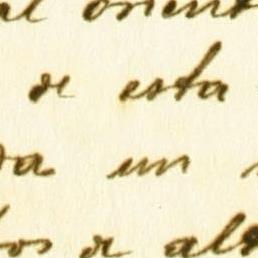 al orient
de esta
da un
tos de alt